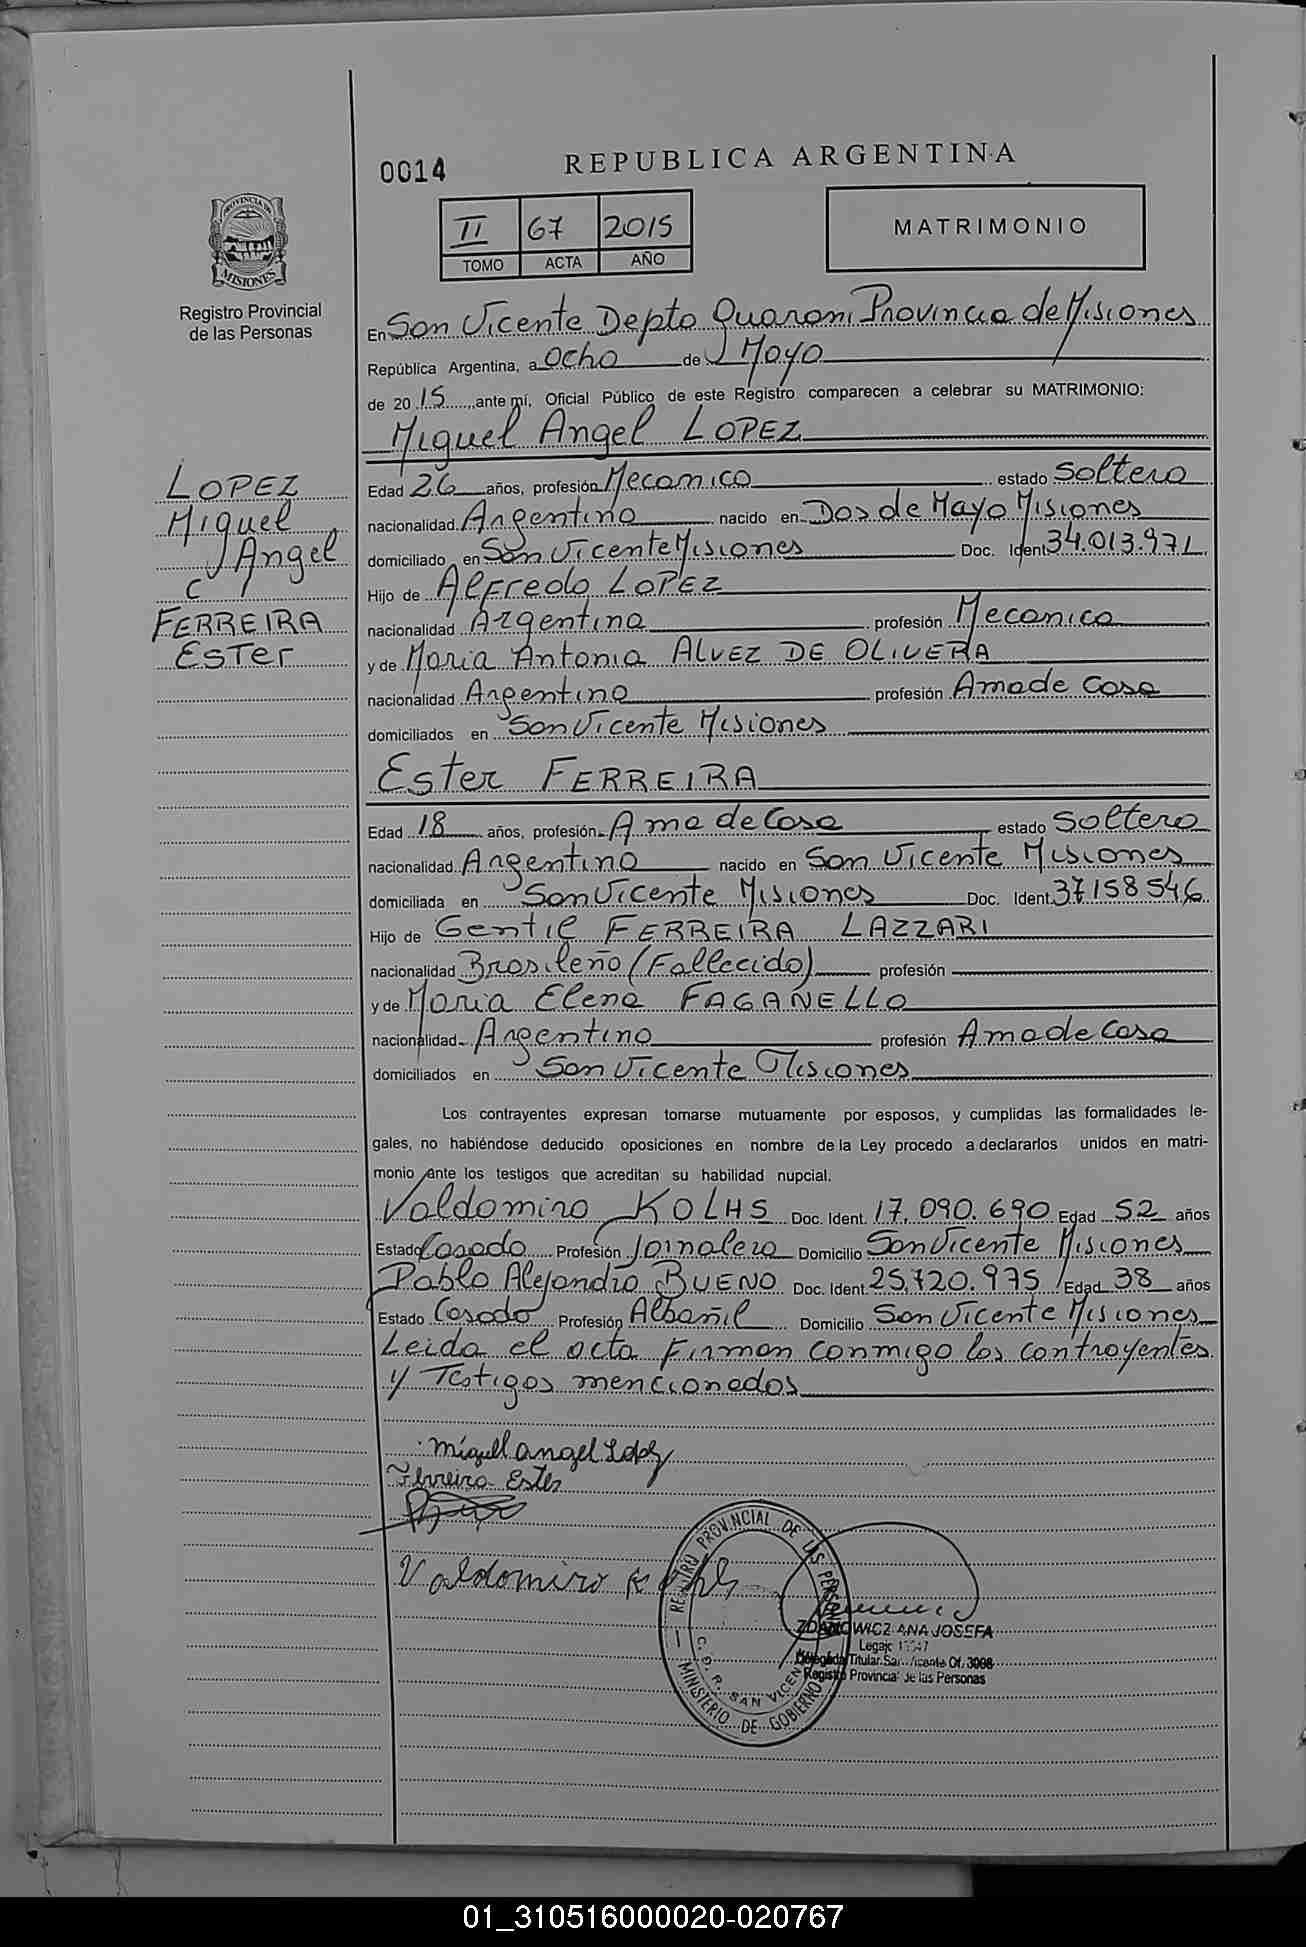 0014
REPUBLICA ARGENTINA
II 67 2015
TOMO ACTA AÑO
MATRIMONIO
PROVINCIA DE MISIONES
Registro Provincial
de las Personas
En San Vicente Depto Guarani Provincia de Misiones
República Argentina, a Ocho de Mayo
de 2015, ante mí, Oficial Público de este Registro comparecen a celebrar su MATRIMONIO:
Miguel Angel LOPEZ
LOPEZ
Miguel
Angel
C
FERREIRA
Ester
Edad 26 años, profesión Mecanico estado Soltero
nacionalidad Argentino nacido en Dos de Mayo Misiones
domiciliado en San Vicente Misiones Doc. Ident. 34.013.971
Hijo de Alfredo LOPEZ
nacionalidad Argentina profesión Mecanico
y de Maria Antonia ALVEZ DE OLIVERA
nacionalidad Argentina profesión Ama de Casa
domiciliados en San Vicente Misiones
Ester FERREIRA
Edad 18 años, profesión Ama de Casa estado Soltera
nacionalidad Argentina nacido en San Vicente Misiones
domiciliada en San Vicente Misiones Doc. Ident. 37158546
Hijo de Gentil FERREIRA LAZZARI
nacionalidad Brasileño (Fallecido) profesión
y de Maria Elena FAGANELLO
nacionalidad Argentina profesión Ama de Casa
domiciliados en San Vicente Misiones
Los contrayentes expresan tomarse mutuamente por esposos, y cumplidas las formalidades le-
gales, no habiéndose deducido oposiciones en nombre de la Ley procedo a declararlos unidos en matri-
monio ante los testigos que acreditan su habilidad nupcial.
Valdomiro KOLHS Doc. Ident. 17.090.690 Edad 52 años
Estado Casado Profesión Jornalero Domicilio San Vicente Misiones
Pablo Alejandro BUENO Doc. Ident. 25.720.975 Edad 38 años
Estado Casado Profesión Albañil Domicilio San Vicente Misiones
Leida el acta firman conmigo los contrayentes
y Testigos mencionados
Miguel angel Lopez
Ferreira Ester
Valdomiro
REGISTRO PROVINCIAL DE LAS PERSONAS
C. D. R. SAN VICENTE
MINISTERIO DE GOBIERNO
ZDANOWICZ ANA JOSEFA
Legajo
Delegada Titular San Vicente Of. 3098
Registro Provincial de las Personas
01_310516000020-020767